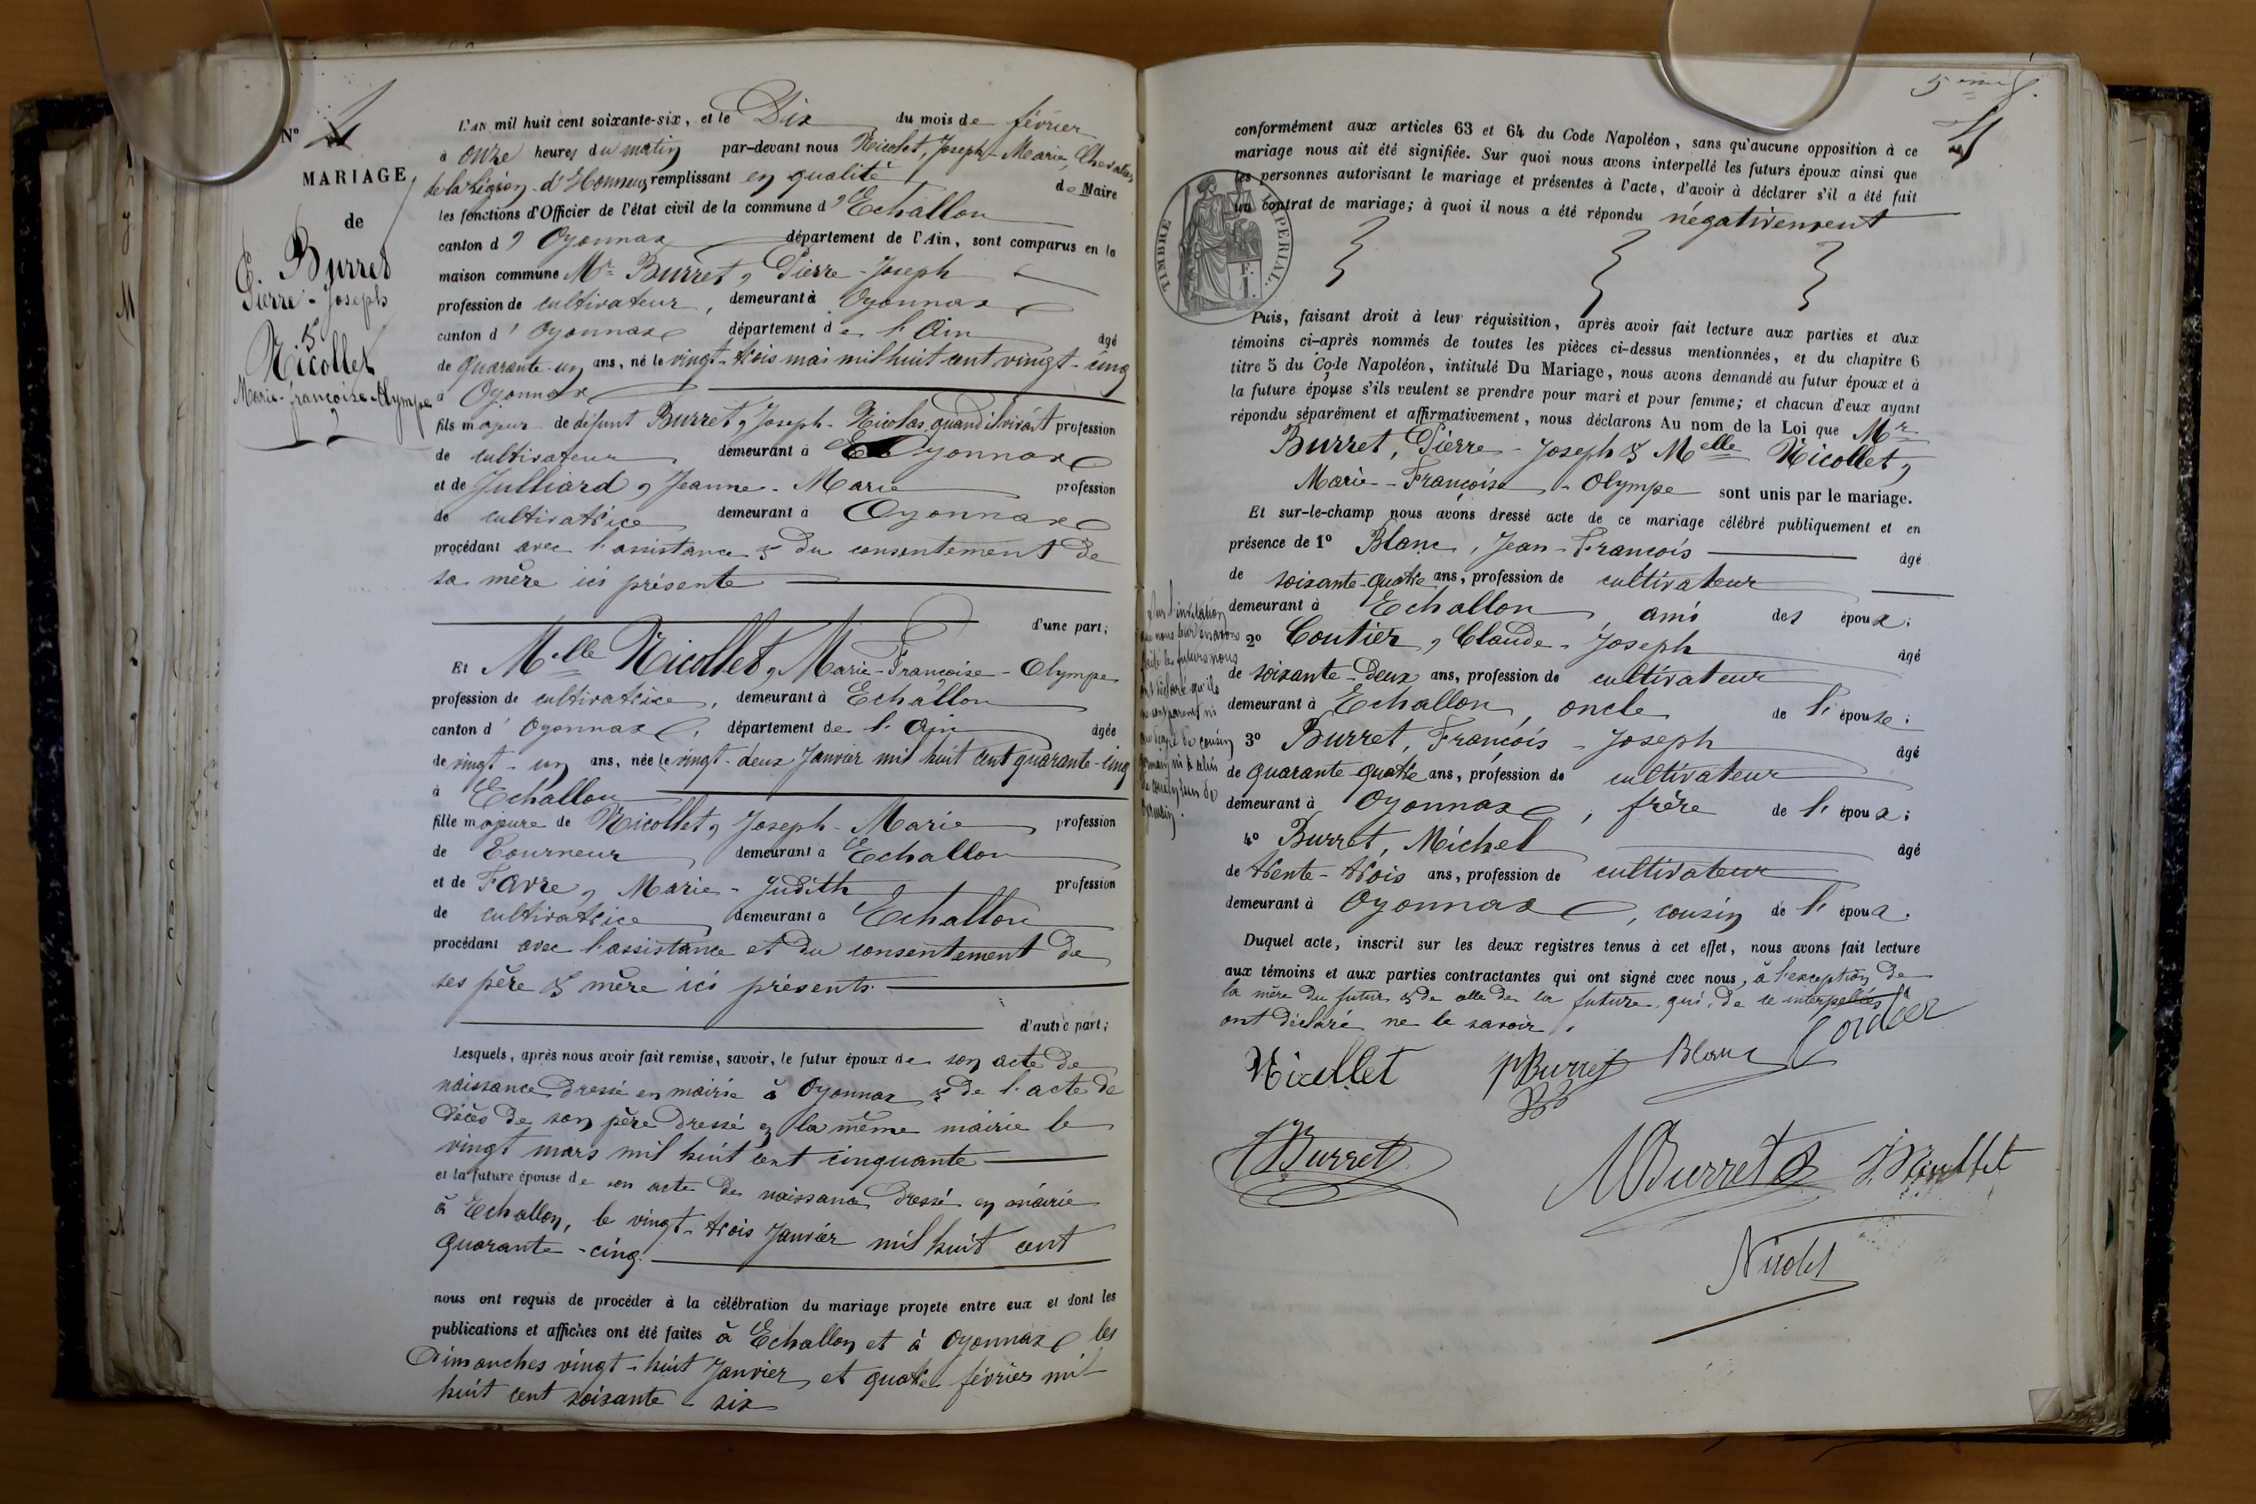 N° 4
MARIAGE
de
Burret
Pierre-Joseph
&
Nicollet
Marie-françoise-Olympe
L'AN mil huit cent soixante-six, et le Dix du mois de février
à onze heures du matin par-devant nous Nicolet, Joseph-Marie, Chevalier
de la Légion d'Honneur remplissant en qualité de Maire
les fonctions d'Officier de l'état civil de la commune d'Echallon
canton d'Oyonnax département de l'Ain, sont comparus en la
maison commune Mr Burret, Pierre-Joseph
profession de cultivateur, demeurant à Oyonnax
canton d'Oyonnax département de l'Ain âgé
de quarante-un ans, né le vingt-trois mai mil huit cent vingt-cinq
à Oyonnax
fils majeur de défunt Burret, Joseph-Nicolas, quand il vivait profession
de cultivateur demeurant à Oyonnax
et de Julliard, Jeanne-Marie profession
de cultivatrice demeurant à Oyonnax
procédant avec l'assistance & du consentement de
sa mère ici présente
d'une part;
Et Melle Nicollet, Marie-Françoise-Olympe
profession de cultivatrice, demeurant à Echallon
canton d'Oyonnax, département de l'Ain âgée
de vingt-un ans, née le vingt-deux Janvier mil huit cent quarante-cinq
à Echallon
fille majeure de Nicollet, Joseph-Marie profession
de Tourneur demeurant à Echallon
et de Favre, Marie-Judith profession
de cultivatrice demeurant à Echallon
procédant avec l'assistance et du consentement de
ses père & mère ici présents
d'autre part;
Lesquels, après nous avoir fait remise, savoir, le futur époux de son acte de
naissance dressé en mairie à Oyonnax & de l'acte de
décès de son père dressé en la même mairie le
vingt mars mil huit cent cinquante
et la future épouse de son acte de naissance dressé en mairie
à Echallon, le vingt-trois Janvier mil huit cent
quarante-cinq.
nous ont requis de procéder à la célébration du mariage projeté entre eux et dont les
publications et affiches ont été faites à Echallon et à Oyonnax les
Dimanches vingt-huit Janvier et quatre février mil
huit cent soixante-six
5ème
4
conformément aux articles 63 et 64 du Code Napoléon, sans qu'aucune opposition à ce
mariage nous ait été signifiée. Sur quoi nous avons interpellé les futurs époux ainsi que
les personnes autorisant le mariage et présentes à l'acte, d'avoir à déclarer s'il a été fait
un contrat de mariage; à quoi il nous a été répondu négativement
TIMBRE IMPÉRIAL.
1 F.
Puis, faisant droit à leur réquisition, après avoir fait lecture aux parties et aux
témoins ci-après nommés de toutes les pièces ci-dessus mentionnées, et du chapitre 6
titre 5 du Code Napoléon, intitulé Du Mariage, nous avons demandé au futur époux et à
la future épouse s'ils veulent se prendre pour mari et pour femme; et chacun d'eux ayant
répondu séparément et affirmativement, nous déclarons Au nom de la Loi que Mr
Burret, Pierre-Joseph & Melle Nicollet,
Marie-Françoise-Olympe sont unis par le mariage.
Et sur-le-champ nous avons dressé acte de ce mariage célébré publiquement et en
présence de 1° Blanc, Jean-François âgé
de soixante-quatre ans, profession de cultivateur
demeurant à Echallon, ami des époux;
2° Coutier, Claude-Joseph âgé
de soixante-deux ans, profession de cultivateur
demeurant à Echallon, oncle de l'épouse;
3° Burret, François-Joseph âgé
de quarante-quatre ans, profession de cultivateur
demeurant à Oyonnax, frère de l'époux;
4° Burret, Michel âgé
de trente-trois ans, profession de cultivateur
demeurant à Oyonnax, cousin de l'époux.
Sur l'invitation
que nous leur en avons
faite les futurs nous
ont déclaré qu'ils
ni
au degré de cousin
germain, ni à celui
de
germain.
Duquel acte, inscrit sur les deux registres tenus à cet effet, nous avons fait lecture
aux témoins et aux parties contractantes qui ont signé avec nous, à l'exception de
la mère du futur & de celle de la future, qui, de ce interpellées
ont déclaré ne le savoir.
Nicollet PBurret Blanc
Burret MBurret
Nicolet